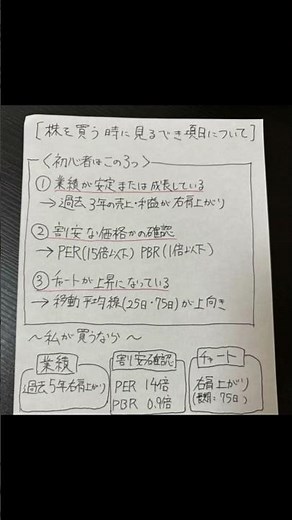 [株を買う時に見るべき項目について]
〈初心者はこの3つ〉
① 業績が安定または成長している
→ 過去3年の売上・利益が右肩上がり
② 割安な価格かの確認
→ PER(15倍以下) PBR(1倍以下)
③ チャートが上昇になっている
→ 移動平均線(25日・75日)が上向き
〜私が買うなら〜
業績
過去5年右肩上がり
割安確認
PER 14倍
PBR 0.9倍
チャート
右肩上がり
75日)